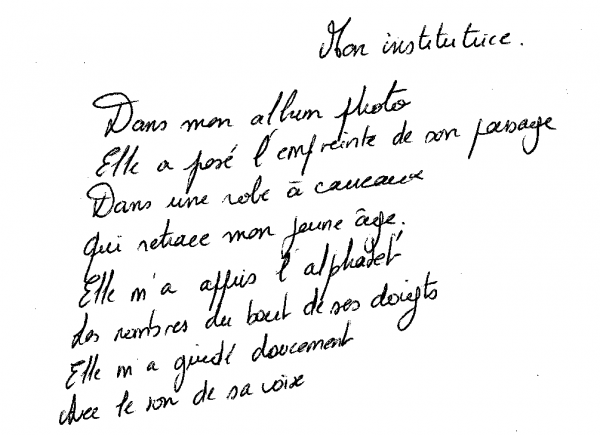 Mon institutrice.
Dans mon album photo
Elle a posé l'empreinte de son passage
Dans une robe à carreaux
qui retrace mon jeune âge.
Elle m'a appris l'alphabet
Les nombres du bout de ses doigts
Elle m'a guidé doucement
Avec le son de sa voix